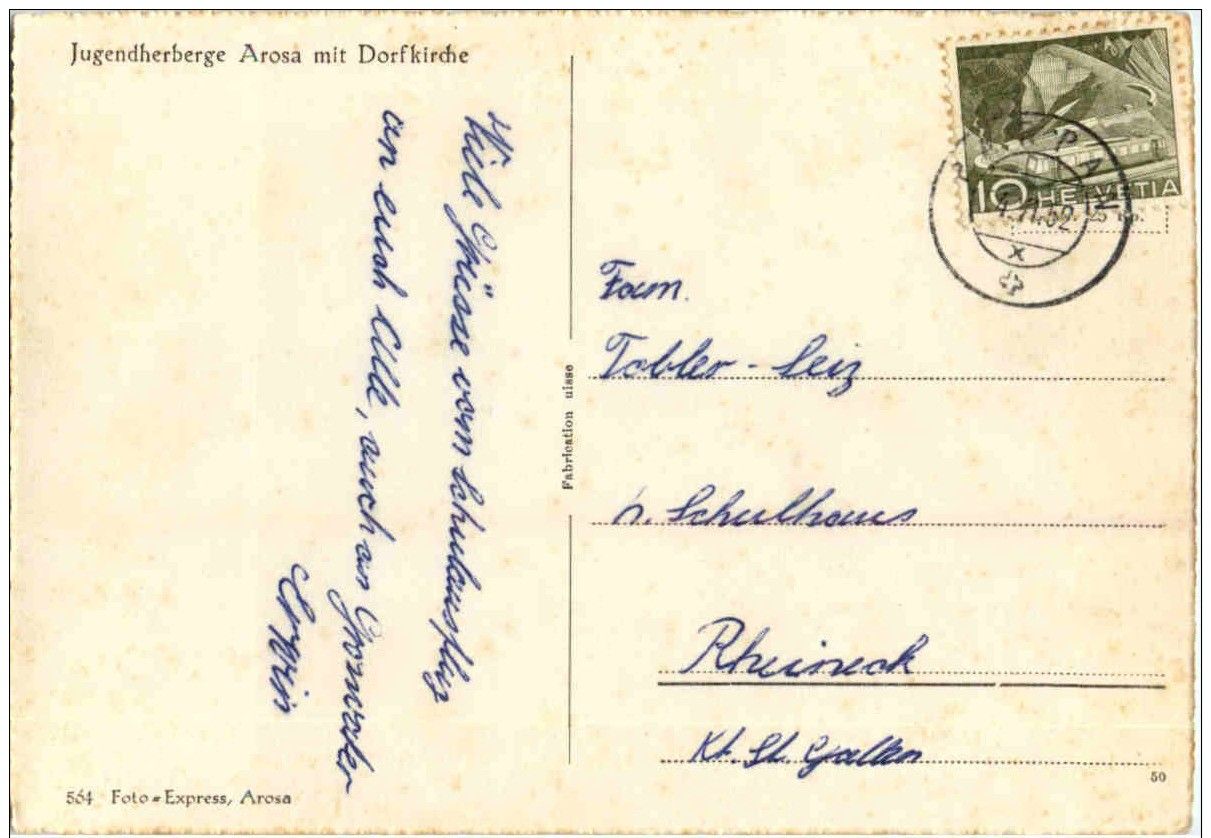 Jugendherberge Arosa mit Dorfkirche
Viele Grüsse vom Schulausflug
an euch Alle, auch an Grosvater
Erwin
564 Foto-Express, Arosa
Fabrication uisse
10 HELVETIA
52
x
Fam.
Tobler - Leiz
n. Schulhaus
Rheineck
Kt. St. Gallen
50